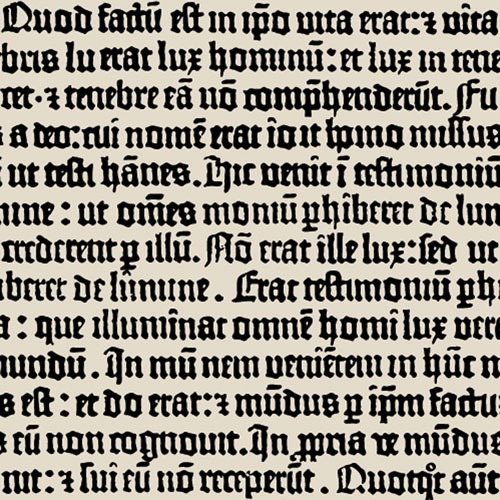 Quod factū est in ip̄o uita erat:⁊ vita
bris lu erat lux hominū:et lux in tene
ret.⁊ tenebre eā nō comp̄henderūt.Fu
s a deo:cui nomē erat io it homo missus
ut testi hānes.Hic venit ī testimoniū
mine : ut om̄es moniū ꝑhiberet de lum
crederent ꝑ illū.Nō erat ille lux:sed ut
hiberet de lumine . Erat testimoniū ꝑh
a : que illuminat omnē homi lux vera
mundū . In mū nem veniētem in hūc m
s est : et do erat:⁊ mūdus ꝑ ip̄m factu
s eū non cognouit.In ꝓpria ve mūdus
nit:⁊ sui eū nō receperūt . Quotqt aūt